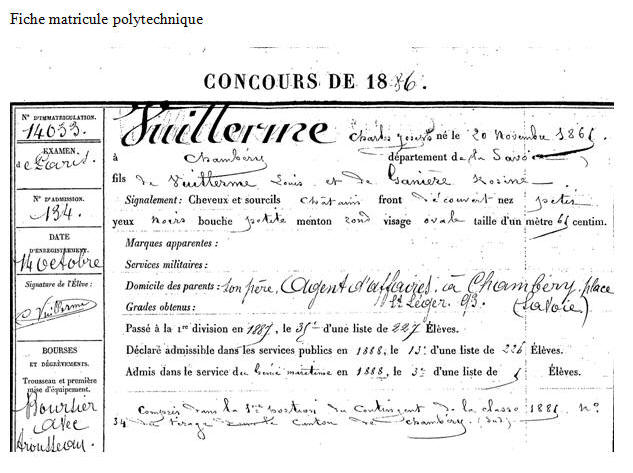 Fiche matricule polytechnique
CONCOURS DE 1886.
N° D'IMMATRICULATION.
14033.
EXAMEN
de Paris.
N° D'ADMISSION.
134.
DATE
D'ENREGISTREMENT.
14 octobre
Signature de l'Élève :
C. Vuillerme
BOURSES
ET DÉGRÈVEMENTS.
Trousseau et première
mise d'équipement.
Boursier
avec
trousseau.
Vuillerme Charles Joseph né le 20 Novembre 1861.
à Chambéry département de la Savoie
fils de Vuillerme Louis et de Rosine
Signalement : Cheveux et sourcils châtains front découvert nez petit
yeux noirs bouche petite menton rond visage ovale taille d'un mètre 61 centim.
Marques apparentes :
Services militaires :
Domicile des parents : son père, Agent d'affaires, à Chambéry, place
St Léger 93. (Savoie)
Grades obtenus :
Passé à la 1re division en 1887, le 35e d'une liste de 227 Élèves.
Déclaré admissible dans les services publics en 1888, le 13e d'une liste de 226 Élèves.
Admis dans le service du Génie maritime en 1888, le 3e d'une liste de Élèves.
Compris dans la 1re portion du contingent de la classe 1881 n°
34 du tirage dans le canton de Chambéry (sud).